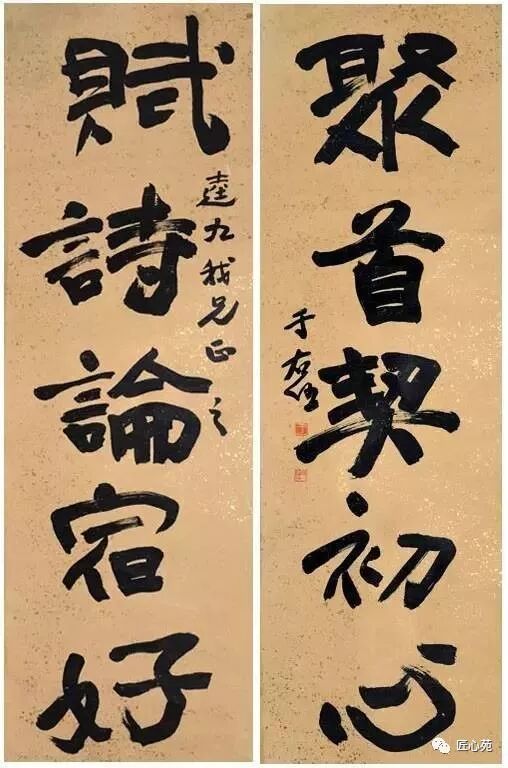 聚首契初心
于右任
逵九我兄正之
賦詩論宿好
匠心苑